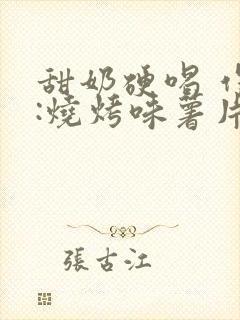 甜奶硬唱
:燒烤味薯片
張古江